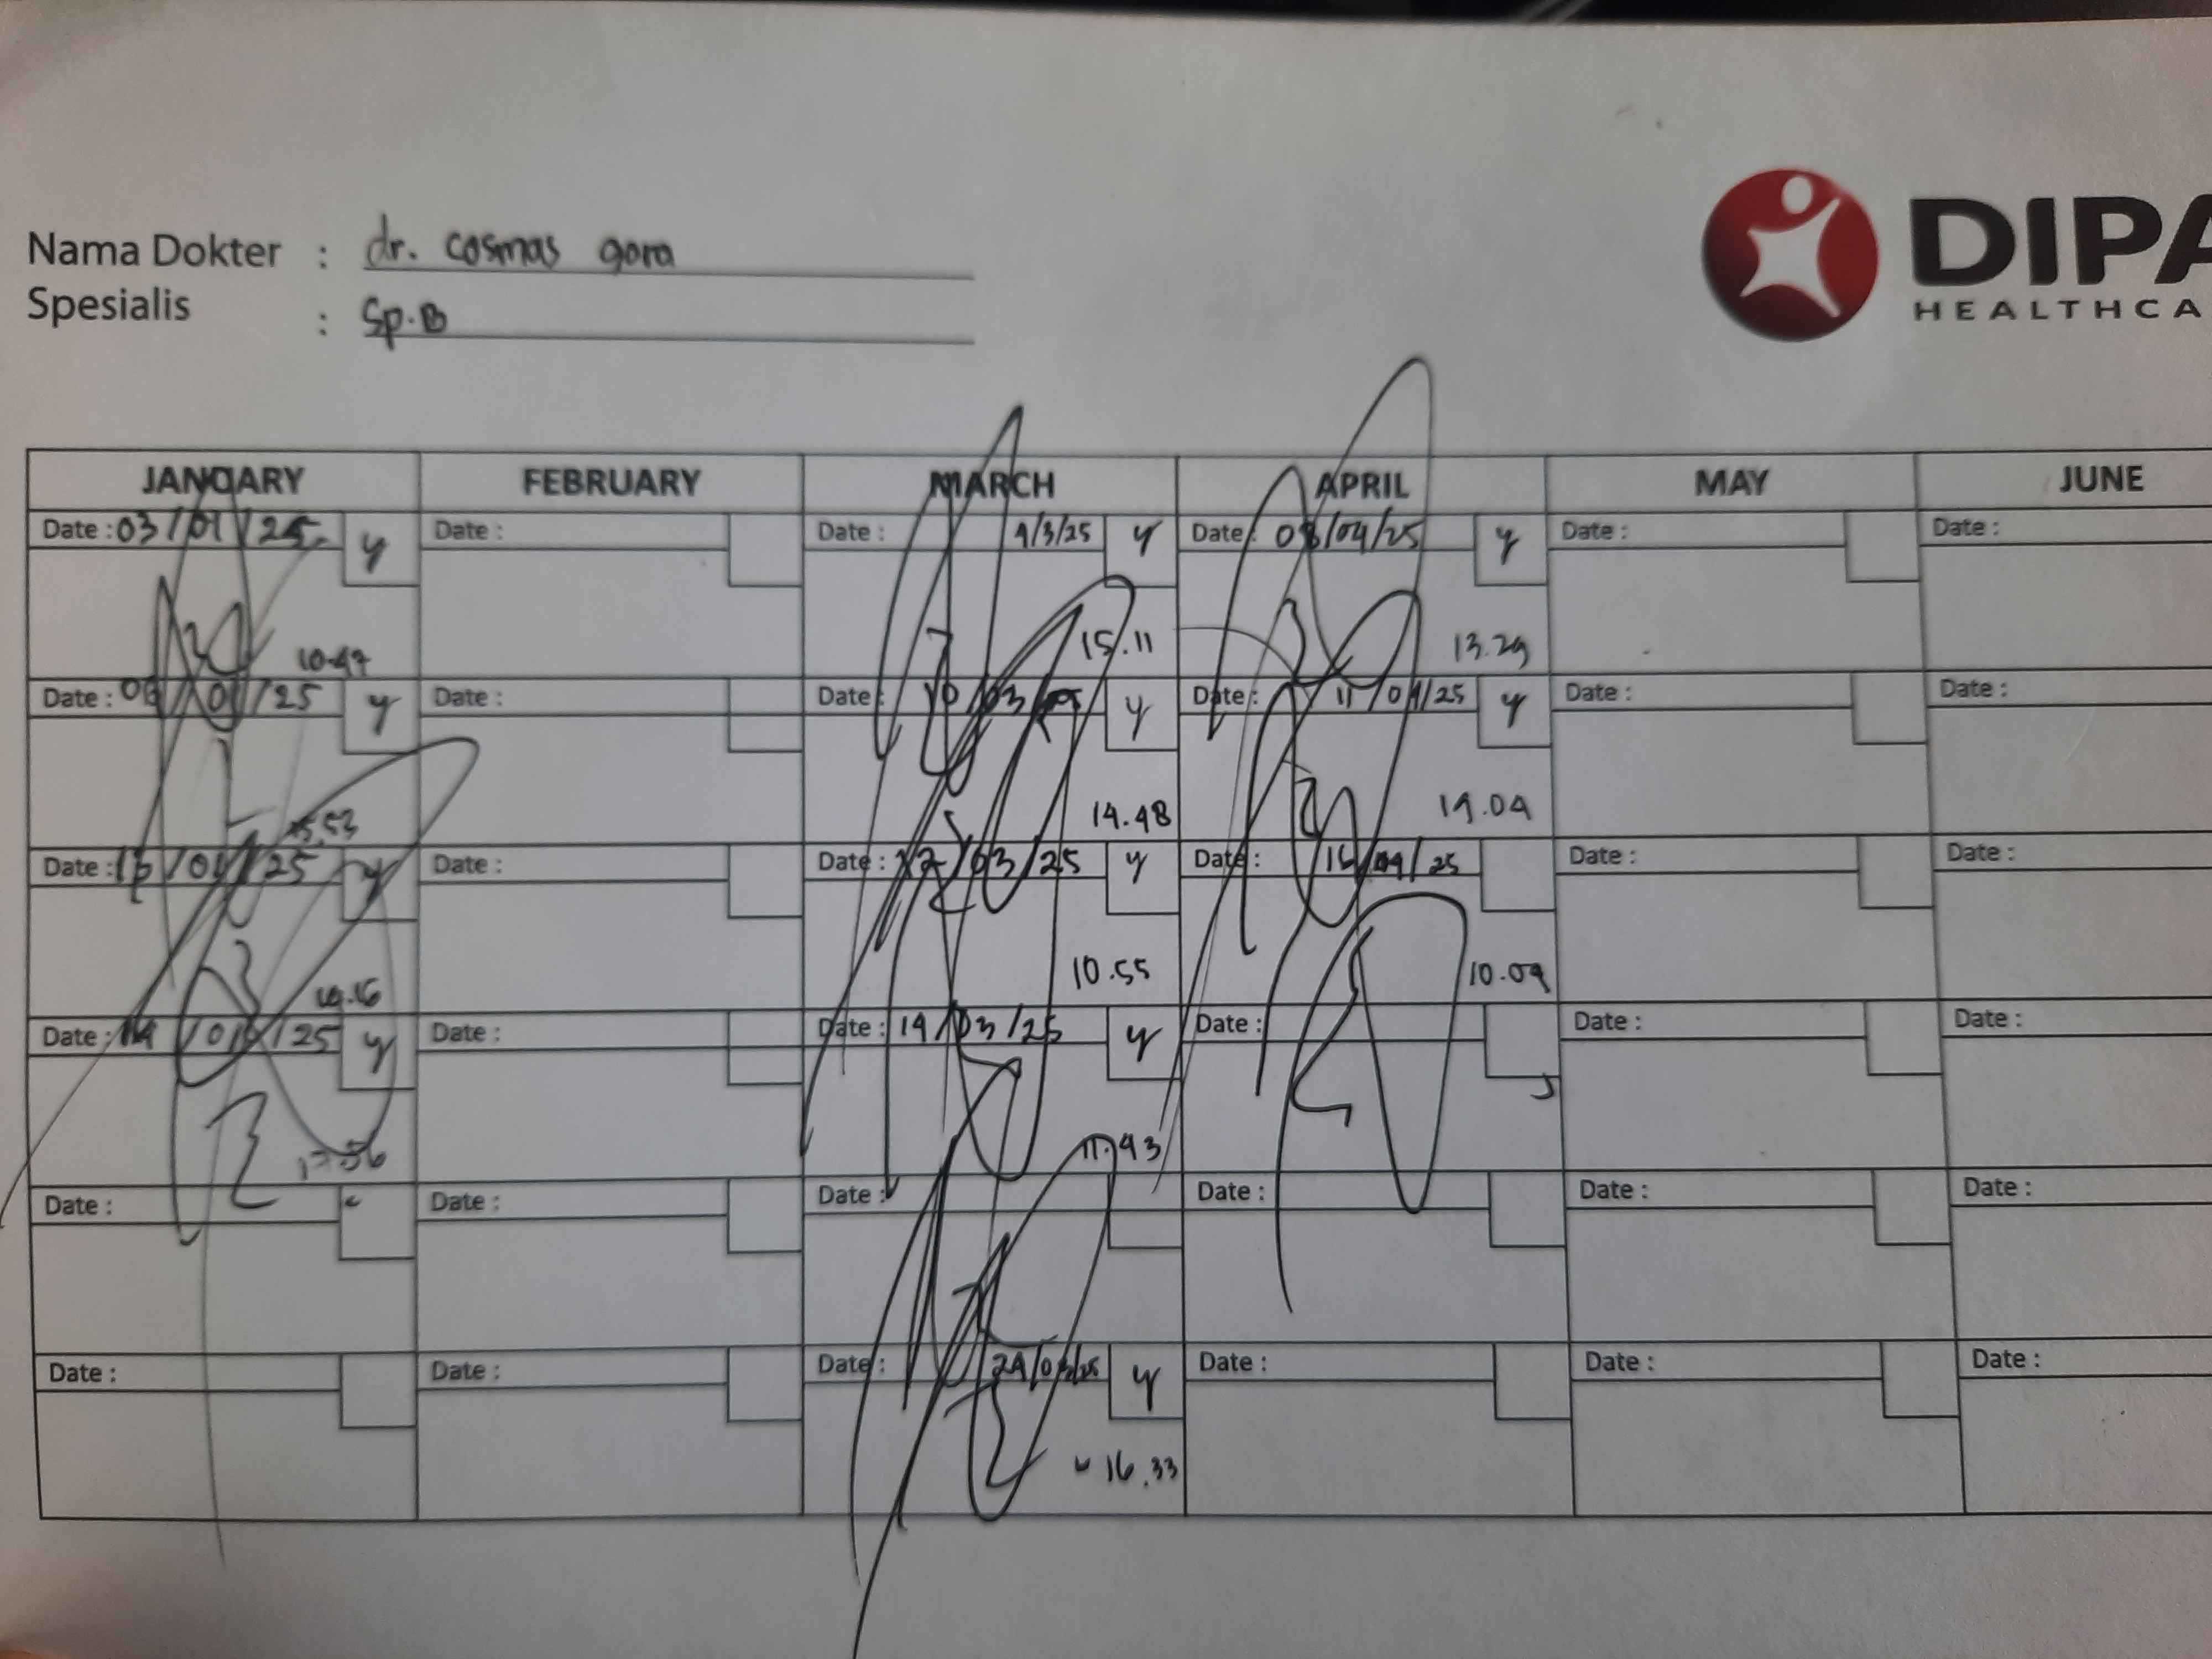 Nama Dokter : dr. cosmas gora
Spesialis : Sp.B
DIPA
HEALTHCA
JANUARY FEBRUARY MARCH APRIL MAY JUNE
Date : 03/01/25 y Date : Date : 4/3/25 y Date : 08/04/25 y Date : Date :
10.47 15.11 13.29
Date : 06/01/25 y Date : Date : 10/03/25 y Date : 11/04/25 y Date : Date :
15.53 14.48 14.04
Date : 13/01/25 y Date : Date : 12/03/25 y Date : 16/04/25 Date : Date :
14.16 10.55 10.09
Date : 14/01/25 y Date : Date : 14/03/25 y Date : Date : Date :
17.56 11.43
Date : Date : Date : Date : Date : Date :
Date : Date : Date : 24/03/25 y Date : Date : Date :
16.33